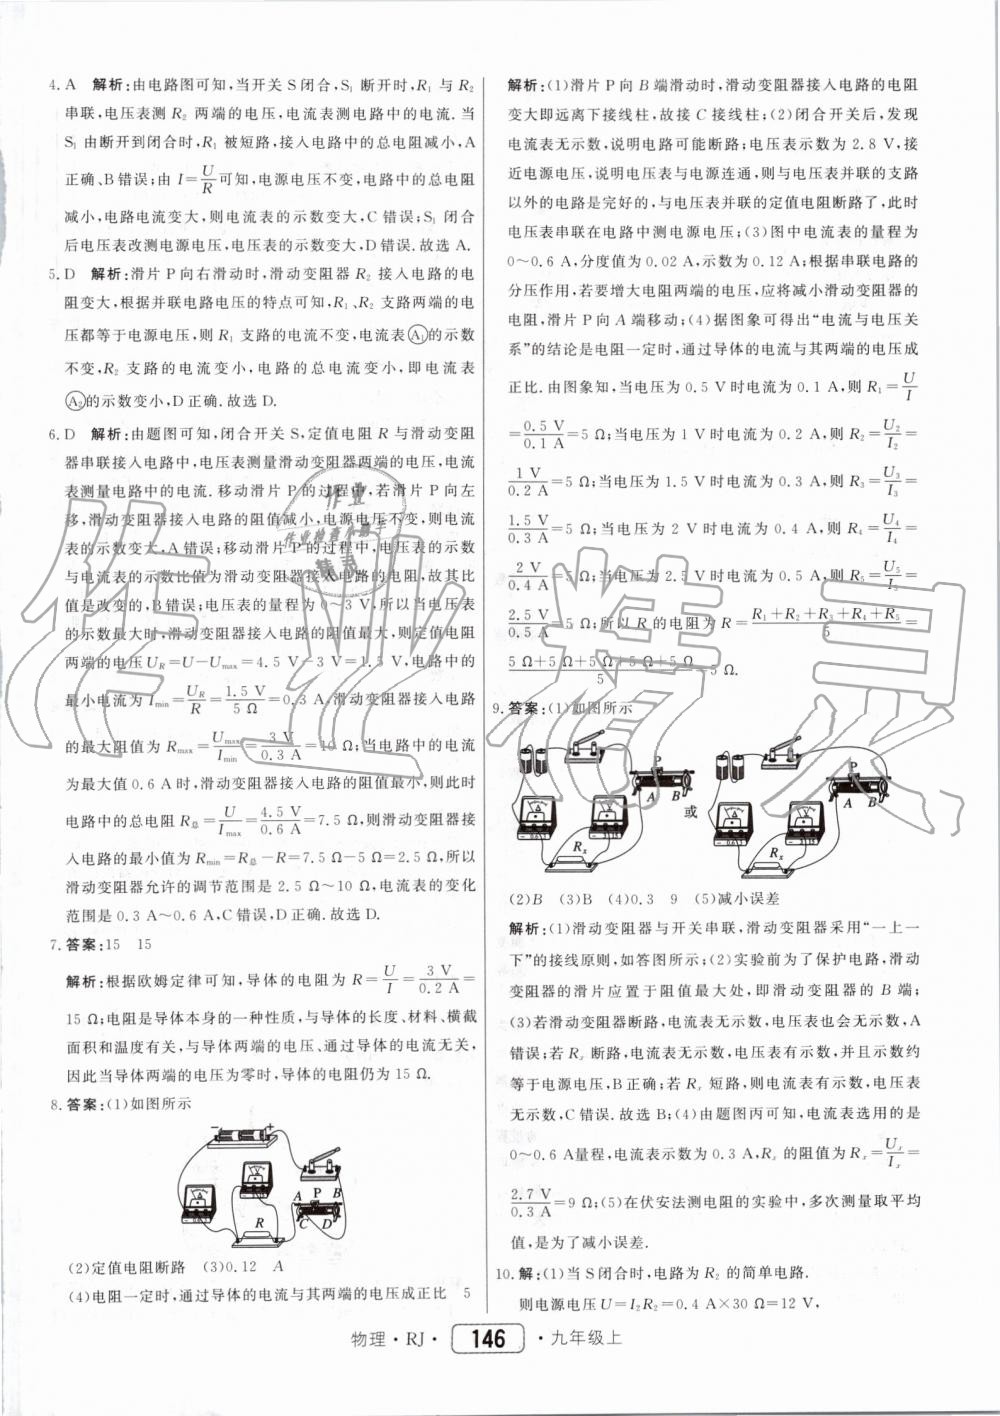 4. A 解析:由电路图可知,当开关S闭合,S₁断开时,R₁与R₂
串联,电压表测R₂两端的电压,电流表测电路中的电流.当
S₁由断开到闭合时,R₁被短路,接入电路中的总电阻减小,A
正确、B错误;由I=U/R可知,电源电压不变,电路中的总电阻
减小,电路电流变大,则电流表的示数变大,C错误;S₁闭合
后电压表改测电源电压,电压表的示数变大,D错误.故选A.
5. D 解析:滑片P向右滑动时,滑动变阻器R₂接入电路的电
阻变大,根据并联电路电压的特点可知,R₁、R₂支路两端的电
压都等于电源电压,则R₁支路的电流不变,电流表Ⓐ₁的示数
不变,R₂支路的电流变小,电路的总电流变小,即电流表
Ⓐ₂的示数变小,D正确.故选D.
6. D 解析:由题图可知,闭合开关S,定值电阻R与滑动变阻
器串联接入电路中,电压表测量滑动变阻器两端的电压,电流
表测量电路中的电流.移动滑片P的过程中,若滑片P向左
移,滑动变阻器接入电路的阻值减小,电源电压不变,则电流
表的示数变大,A错误;移动滑片P的过程中,电压表的示数
与电流表的示数比值为滑动变阻器接入电路的电阻,故其比
值是改变的,B错误;电压表的量程为0～3 V,所以当电压表
的示数最大时,滑动变阻器接入电路的阻值最大,则定值电阻
两端的电压U_R=U-U_max=4.5 V-3 V=1.5 V,电路中的
最小电流为I_min=U_R/R=1.5 V/5 Ω=0.3 A,滑动变阻器接入电路
的最大阻值为R_max=U_max/I_min=3 V/0.3 A=10 Ω;当电路中的电流
为最大值0.6 A时,滑动变阻器接入电路的阻值最小,则此时
电路中的总电阻R总=U/I_max=4.5 V/0.6 A=7.5 Ω,则滑动变阻器接
入电路的最小值为R_min=R总-R=7.5 Ω-5 Ω=2.5 Ω,所以
滑动变阻器允许的调节范围是2.5 Ω～10 Ω,电流表的变化
范围是0.3 A～0.6 A,C错误,D正确.故选D.
7. 答案:15 15
解析:根据欧姆定律可知,导体的电阻为R=U/I=3 V/0.2 A=
15 Ω;电阻是导体本身的一种性质,与导体的长度、材料、横截
面积和温度有关,与导体两端的电压、通过导体的电流无关,
因此当导体两端的电压为零时,导体的电阻仍为15 Ω.
8. 答案:(1)如图所示
- +
A P B
R C D
(2)定值电阻断路 (3)0.12 A
(4)电阻一定时,通过导体的电流与其两端的电压成正比 5
解析:(1)滑片P向B端滑动时,滑动变阻器接入电路的电阻
变大即远离下接线柱,故接C接线柱;(2)闭合开关后,发现
电流表无示数,说明电路可能断路;电压表示数为2.8 V,接
近电源电压,说明电压表与电源连通,则与电压表并联的支路
以外的电路是完好的,与电压表并联的定值电阻断路了,此时
电压表串联在电路中测电源电压;(3)图中电流表的量程为
0～0.6 A,分度值为0.02 A,示数为0.12 A;根据串联电路的
分压作用,若要增大电阻两端的电压,应将减小滑动变阻器的
电阻,滑片P向A端移动;(4)据图象可得出“电流与电压关
系”的结论是电阻一定时,通过导体的电流与其两端的电压成
正比.由图象知,当电压为0.5 V时电流为0.1 A,则R₁=U/I
=0.5 V/0.1 A=5 Ω;当电压为1 V时电流为0.2 A,则R₂=U₂/I₂=
1 V/0.2 A=5 Ω;当电压为1.5 V时电流为0.3 A,则R₃=U₃/I₃=
1.5 V/0.3 A=5 Ω;当电压为2 V时电流为0.4 A,则R₄=U₄/I₄=
2 V/0.4 A=5 Ω;当电压为2.5 V时电流为0.5 A,则R₅=U₅/I₅=
2.5 V/0.5 A=5 Ω;所以R的电阻为R=(R₁+R₂+R₃+R₄+R₅)/5=
(5 Ω+5 Ω+5 Ω+5 Ω+5 Ω)/5=5 Ω.
9. 答案:(1)如图所示
P A B Rₓ 或 P A B Rₓ
(2)B (3)B (4)0.3 9 (5)减小误差
解析:(1)滑动变阻器与开关串联,滑动变阻器采用“一上一
下”的接线原则,如答图所示;(2)实验前为了保护电路,滑动
变阻器的滑片应置于阻值最大处,即滑动变阻器的B端;
(3)若滑动变阻器断路,电流表无示数,电压表也会无示数,A
错误;若Rₓ断路,电流表无示数,电压表有示数,并且示数约
等于电源电压,B正确;若Rₓ短路,则电流表有示数,电压表
无示数,C错误.故选B;(4)由题图丙可知,电流表选用的是
0～0.6 A量程,电流表示数为0.3 A,Rₓ的阻值为Rₓ=Uₓ/Iₓ=
2.7 V/0.3 A=9 Ω;(5)在伏安法测电阻的实验中,多次测量取平均
值,是为了减小误差.
10. 解:(1)当S闭合时,电路为R₂的简单电路.
则电源电压U=I₂R₂=0.4 A×30 Ω=12 V,
物理·RJ· 146 ·九年级上
作业精灵
作业
作业检查小助手
精灵